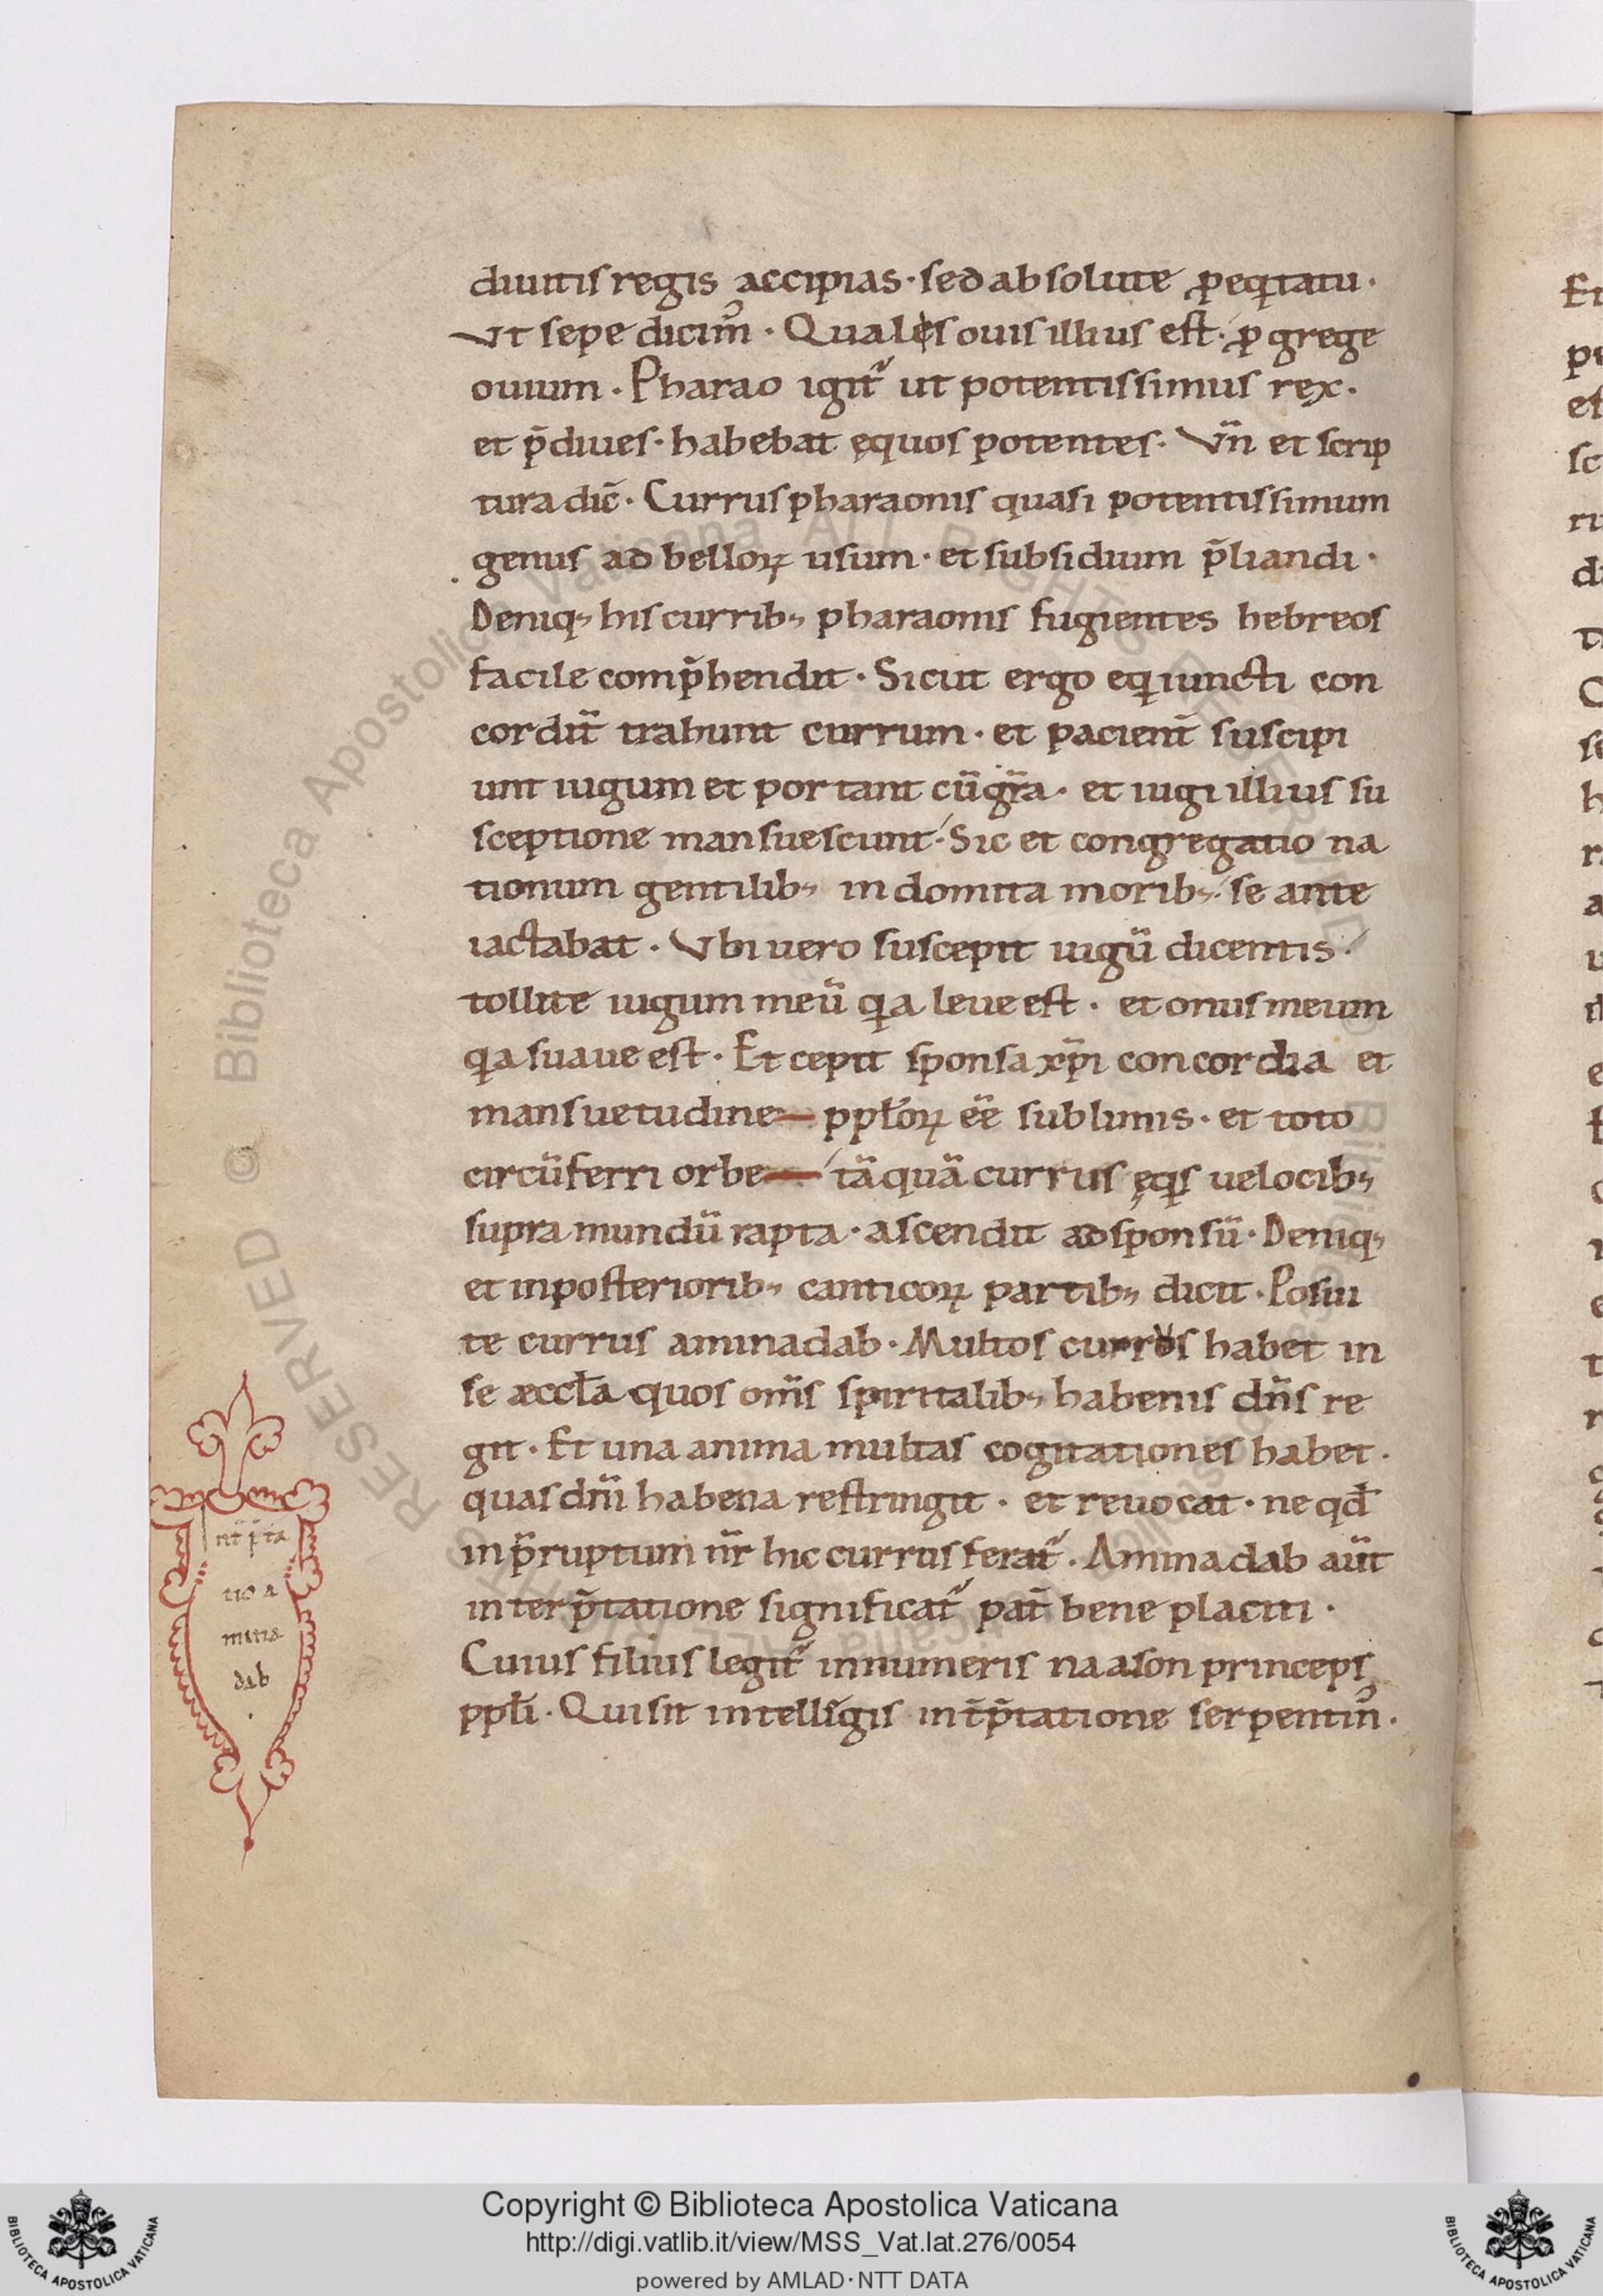 diuitis regis accipias · sed absolute ꝓ eqͥtatu ·
Vt sepe dicim᷒ · Quales ouis illius est · ꝓ grege
ouium · Pharao igit᷑ ut potentissimus rex ·
et p̄diues · habebat ęquos potentes · Vn̄ et scrip
tura dic̄ · Currus pharaonis quasi potentissimum
genus ad belloꝝ usum · et subsidium p̄liandi ·
Deniq; his currib; pharaonis fugientes hebreos
facile comp̄hendit · Sicut ergo eqͥ iuncti con
cordit̄ trahunt currum · et pacient̄ suscipi
unt iugum et portant cū gr̄a · et iugi illius su
sceptione mansuescunt · Sic et congregatio na
tionum gentilib; indomita morib; · se ante
iactabat · Vbi uero suscepit iugū dicentis ·
tollite iugum meū qͥa leue est · et onus meum
qͥa suaue est · Et cepit sponsa xp̄i concordia et
mansuetudine pplōꝝ eē sublimis · et toto
circūferri orbe tāquā currus ęqͥs uelocib;
supra mundū rapta · ascendit ad sponsū · Deniq;
et in posteriorib; canticoꝝ partib; dicit · Posui
te currus aminadab · Multos currus habet in
se æccl̄a quos om̄s spiritalib; habenis dn̄s re
git · Et una anima multas cogitationes habet ·
quas dn̄i habena restringit · et reuocat · ne qd̄
in p̄ruptum nr̄ hic currus ferat᷑ · Aminadab aūt
interp̄tatione significat᷑ pat̄ bene placiti ·
Cuius filius legit᷑ in numeris naason princeps
ppl̄i · Qui sit intelligis int̄p̄tatione serpentin᷒ ·
nt̄ p̄ta
tio a
mina
dab
Et
pe
et
sc
© Biblioteca Apostolica Vaticana ALL RIGHTS RESERVED
Copyright © Biblioteca Apostolica Vaticana
http://digi.vatlib.it/view/MSS_Vat.lat.276/0054
powered by AMLAD·NTT DATA
BIBLIOTECA APOSTOLICA VATICANA
BIBLIOTECA APOSTOLICA VATICANA